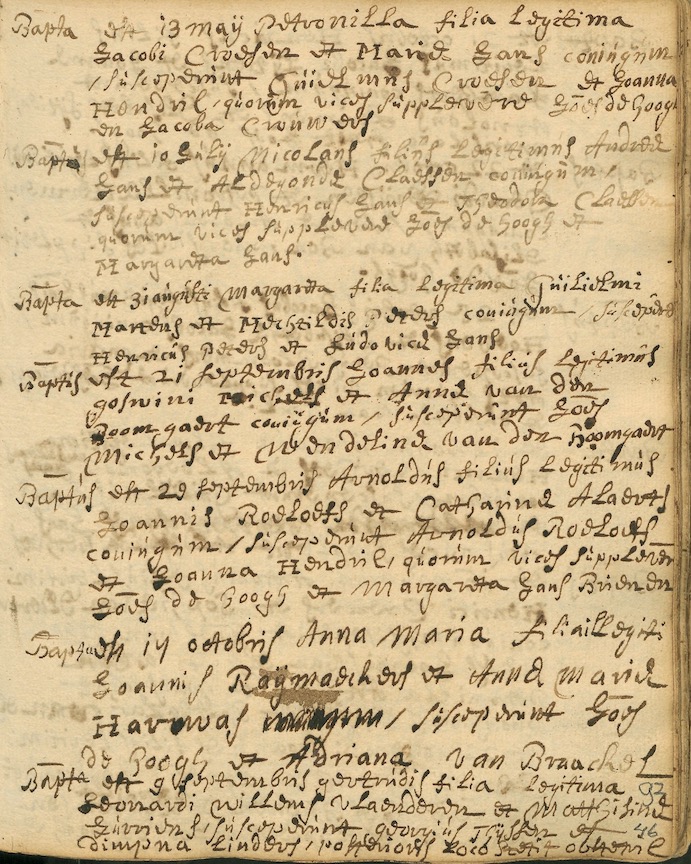 Bapta est 13 maÿ Petronilla filia legitima
Jacobi Croesen et Mariæ Hans coniugum
/ susceperunt Guielmus Croesen et Joanna
Hendrix, quorum vices supplevere Joēs de Hoogh
en Jacoba Cruwers
Baptus est 10 Julÿ Nicolaus filius legitimus Andreæ
Hans et Aldegondæ Claessen coniugum /
susceperunt Henricus Hans et Theodora Claessen
quorum vices supplevere Joēs de Hoogh et
Margareta Hans.
Bapta est 31 augusti Margareta filia legitima Guilielmi
Martens et Mechtildis Peters coniugum / susceperūt
Henricus Peters et Ludovica Hans
Baptus est 21 septembris Joannes filius legitimus
goswini Michels et Annæ van den
Boomgaert coniugum / susceperunt Joēs
Michels et Wendelina van den Boomgaert
Baptus est 29 septembris Arnoldus filius legitimus
Joannis Roeloefs et Catharinæ Alaerts
coniugum / susceperunt Arnoldus Roeloefs
et Joanna Hendrix, quorum vices supplever
Joēs de Hoogh et Margareta Hans Brienen
Bapta est 14 octobris Anna Maria filia illegiti
Joannis Raÿmaeckers et Annæ Mariæ
Harmas / susceperunt Joēs
de Hoogh et Adriana van Braeckel
Bapta est 9 septembris gertrudis filia legitima 32
Leonardi Willems Vlaenderen et Matthiiæ
susceperunt georgius Thijssen et 46
Dimpna Linders / posterioris loco stetit